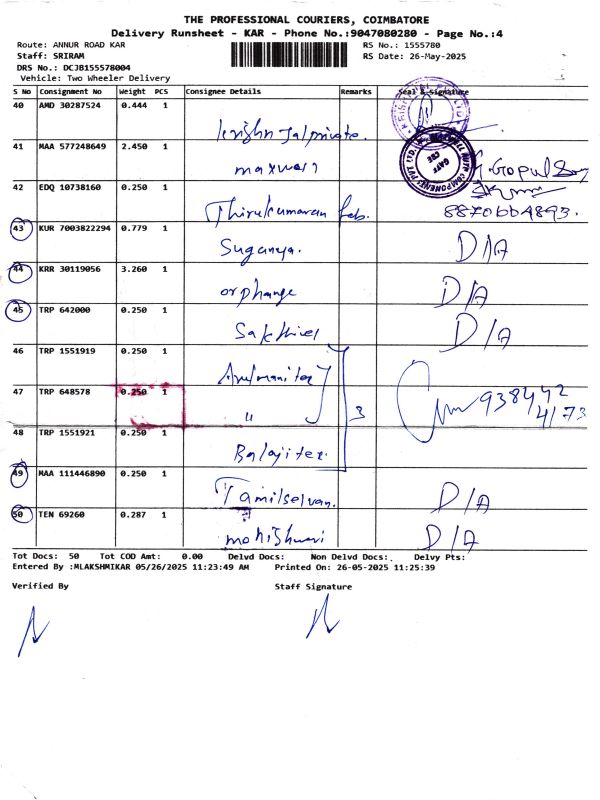 THE PROFESSIONAL COURIERS, COIMBATORE
Delivery Runsheet - KAR - Phone No.:9047080280 - Page No.:4
Route: ANNUR ROAD KAR RS No.: 1555780
Staff: SRIRAM RS Date: 26-May-2025
DRS No.: DCJB155578004
Vehicle: Two Wheeler Delivery
S No Consignment No Weight PCS Consignee Details Remarks Seal & Signature
40 AMD 30287524 0.444 1
41 MAA 577248649 2.450 1 maxwell
42 EDQ 10738160 0.250 1 Thirukumaran fab. 8870664893.
43 KUR 7003822294 0.779 1 Suganya. D/A
44 KRR 30119056 3.260 1 orphange D/A
45 TRP 642000 0.250 1 Sakthivel D/A
46 TRP 1551919 0.250 1
47 TRP 648578 0.250 1 " 3 938442
4173
48 TRP 1551921 0.250 1 Balaji tex.
49 MAA 111446890 0.250 1 Tamilselvan. D/A
50 TEN 69260 0.287 1 mohishwari D/A
Tot Docs: 50 Tot COD Amt: 0.00 Delvd Docs: Non Delvd Docs: Delvy Pts:
Entered By :MLAKSHMIKAR 05/26/2025 11:23:49 AM Printed On: 26-05-2025 11:25:39
Verified By Staff Signature